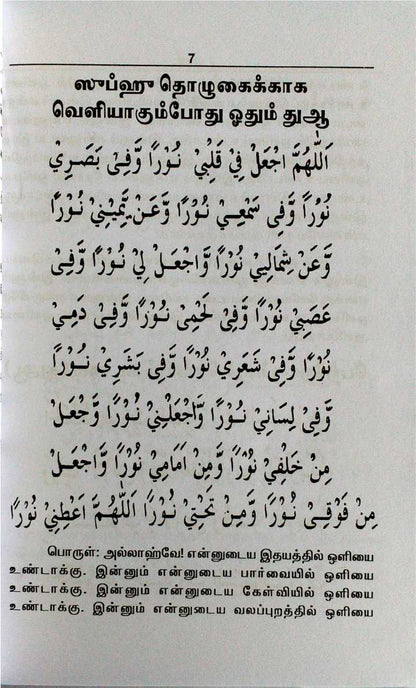 7
ஸுப்ஹு தொழுகைக்காக
வெளியாகும்போது ஓதும் துஆ
اَللّٰهُمَّ اجْعَلْ فِيْ قَلْبِيْ نُوْرًا وَّفِيْ بَصَرِيْ
نُوْرًا وَّفِيْ سَمْعِيْ نُوْرًا وَّعَنْ يَّمِيْنِيْ نُوْرًا
وَّعَنْ شِمَالِيْ نُوْرًا وَّاجْعَلْ لِيْ نُوْرًا وَّفِيْ
عَصَبِيْ نُوْرًا وَّفِيْ لَحْمِيْ نُوْرًا وَّفِيْ دَمِيْ
نُوْرًا وَّفِيْ شَعَرِيْ نُوْرًا وَّفِيْ بَشَرِيْ نُوْرًا
وَّفِيْ لِسَانِيْ نُوْرًا وَّاجْعَلْنِيْ نُوْرًا وَّجْعَلْ
مِنْ خَلْفِيْ نُوْرًا وَّمِنْ اَمَامِيْ نُوْرًا وَّاجْعَلْ
مِنْ فَوْقِيْ نُوْرًا وَّمِنْ تَحْتِيْ نُوْرًا اَللّٰهُمَّ اَعْطِنِيْ نُوْرًا
பொருள்: அல்லாஹ்வே! என்னுடைய இதயத்தில் ஒளியை
உண்டாக்கு. இன்னும் என்னுடைய பார்வையில் ஒளியை
உண்டாக்கு. இன்னும் என்னுடைய கேள்வியில் ஒளியை
உண்டாக்கு. இன்னும் என்னுடைய வலப்புறத்தில் ஒளியை